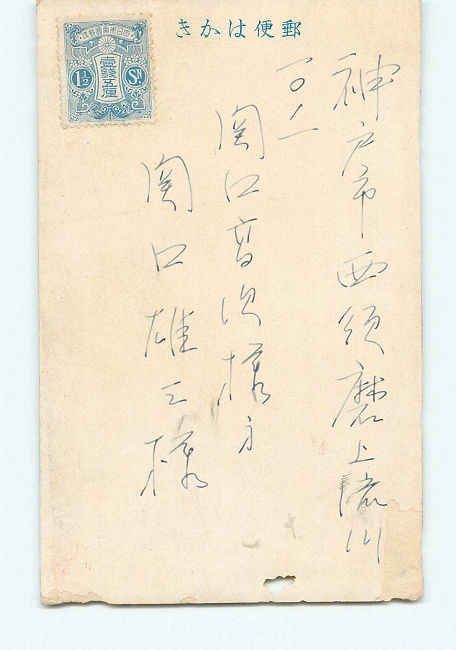 きかは便郵
大日本帝國郵便
1½ Sn.
壹錢五厘
神戸市西須磨上
一〇ノ一
関口音次様方
関口雄三様